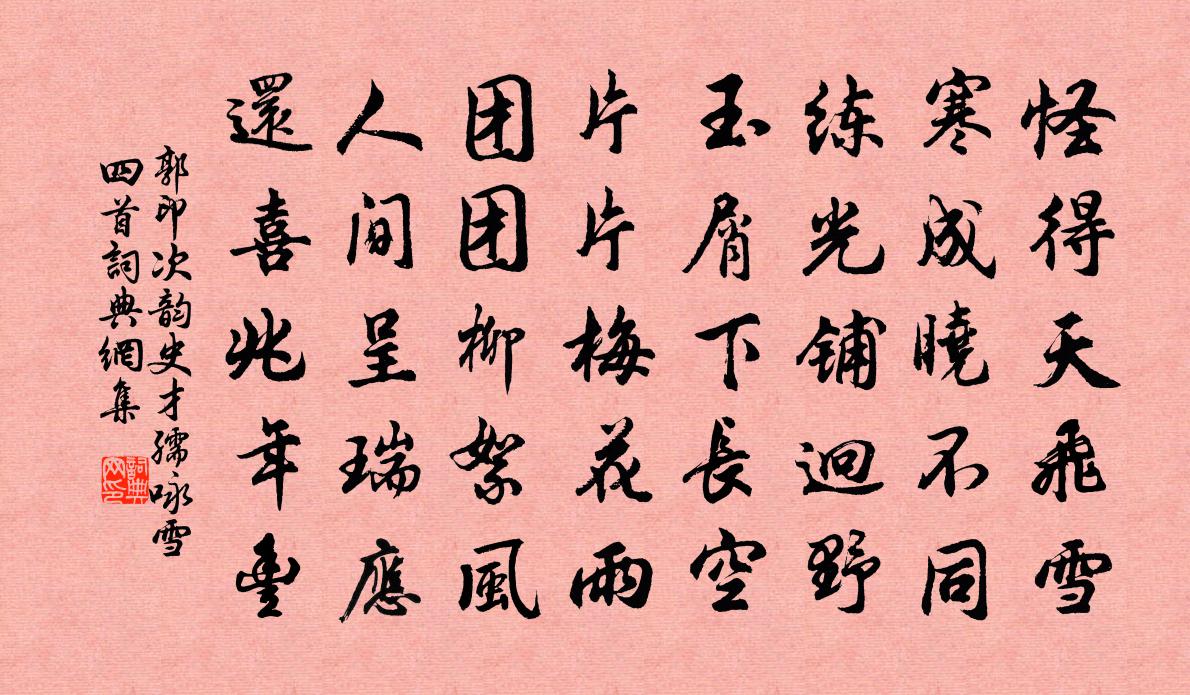 怪得天飛雪
寒成曉不同
练光铺迥野
玉屑下長空
片片梅花雨
团团柳絮風
人间呈瑞應
還喜兆年豐
郭印次韵史才孺咏雪
四首詞典網集
詞典网印